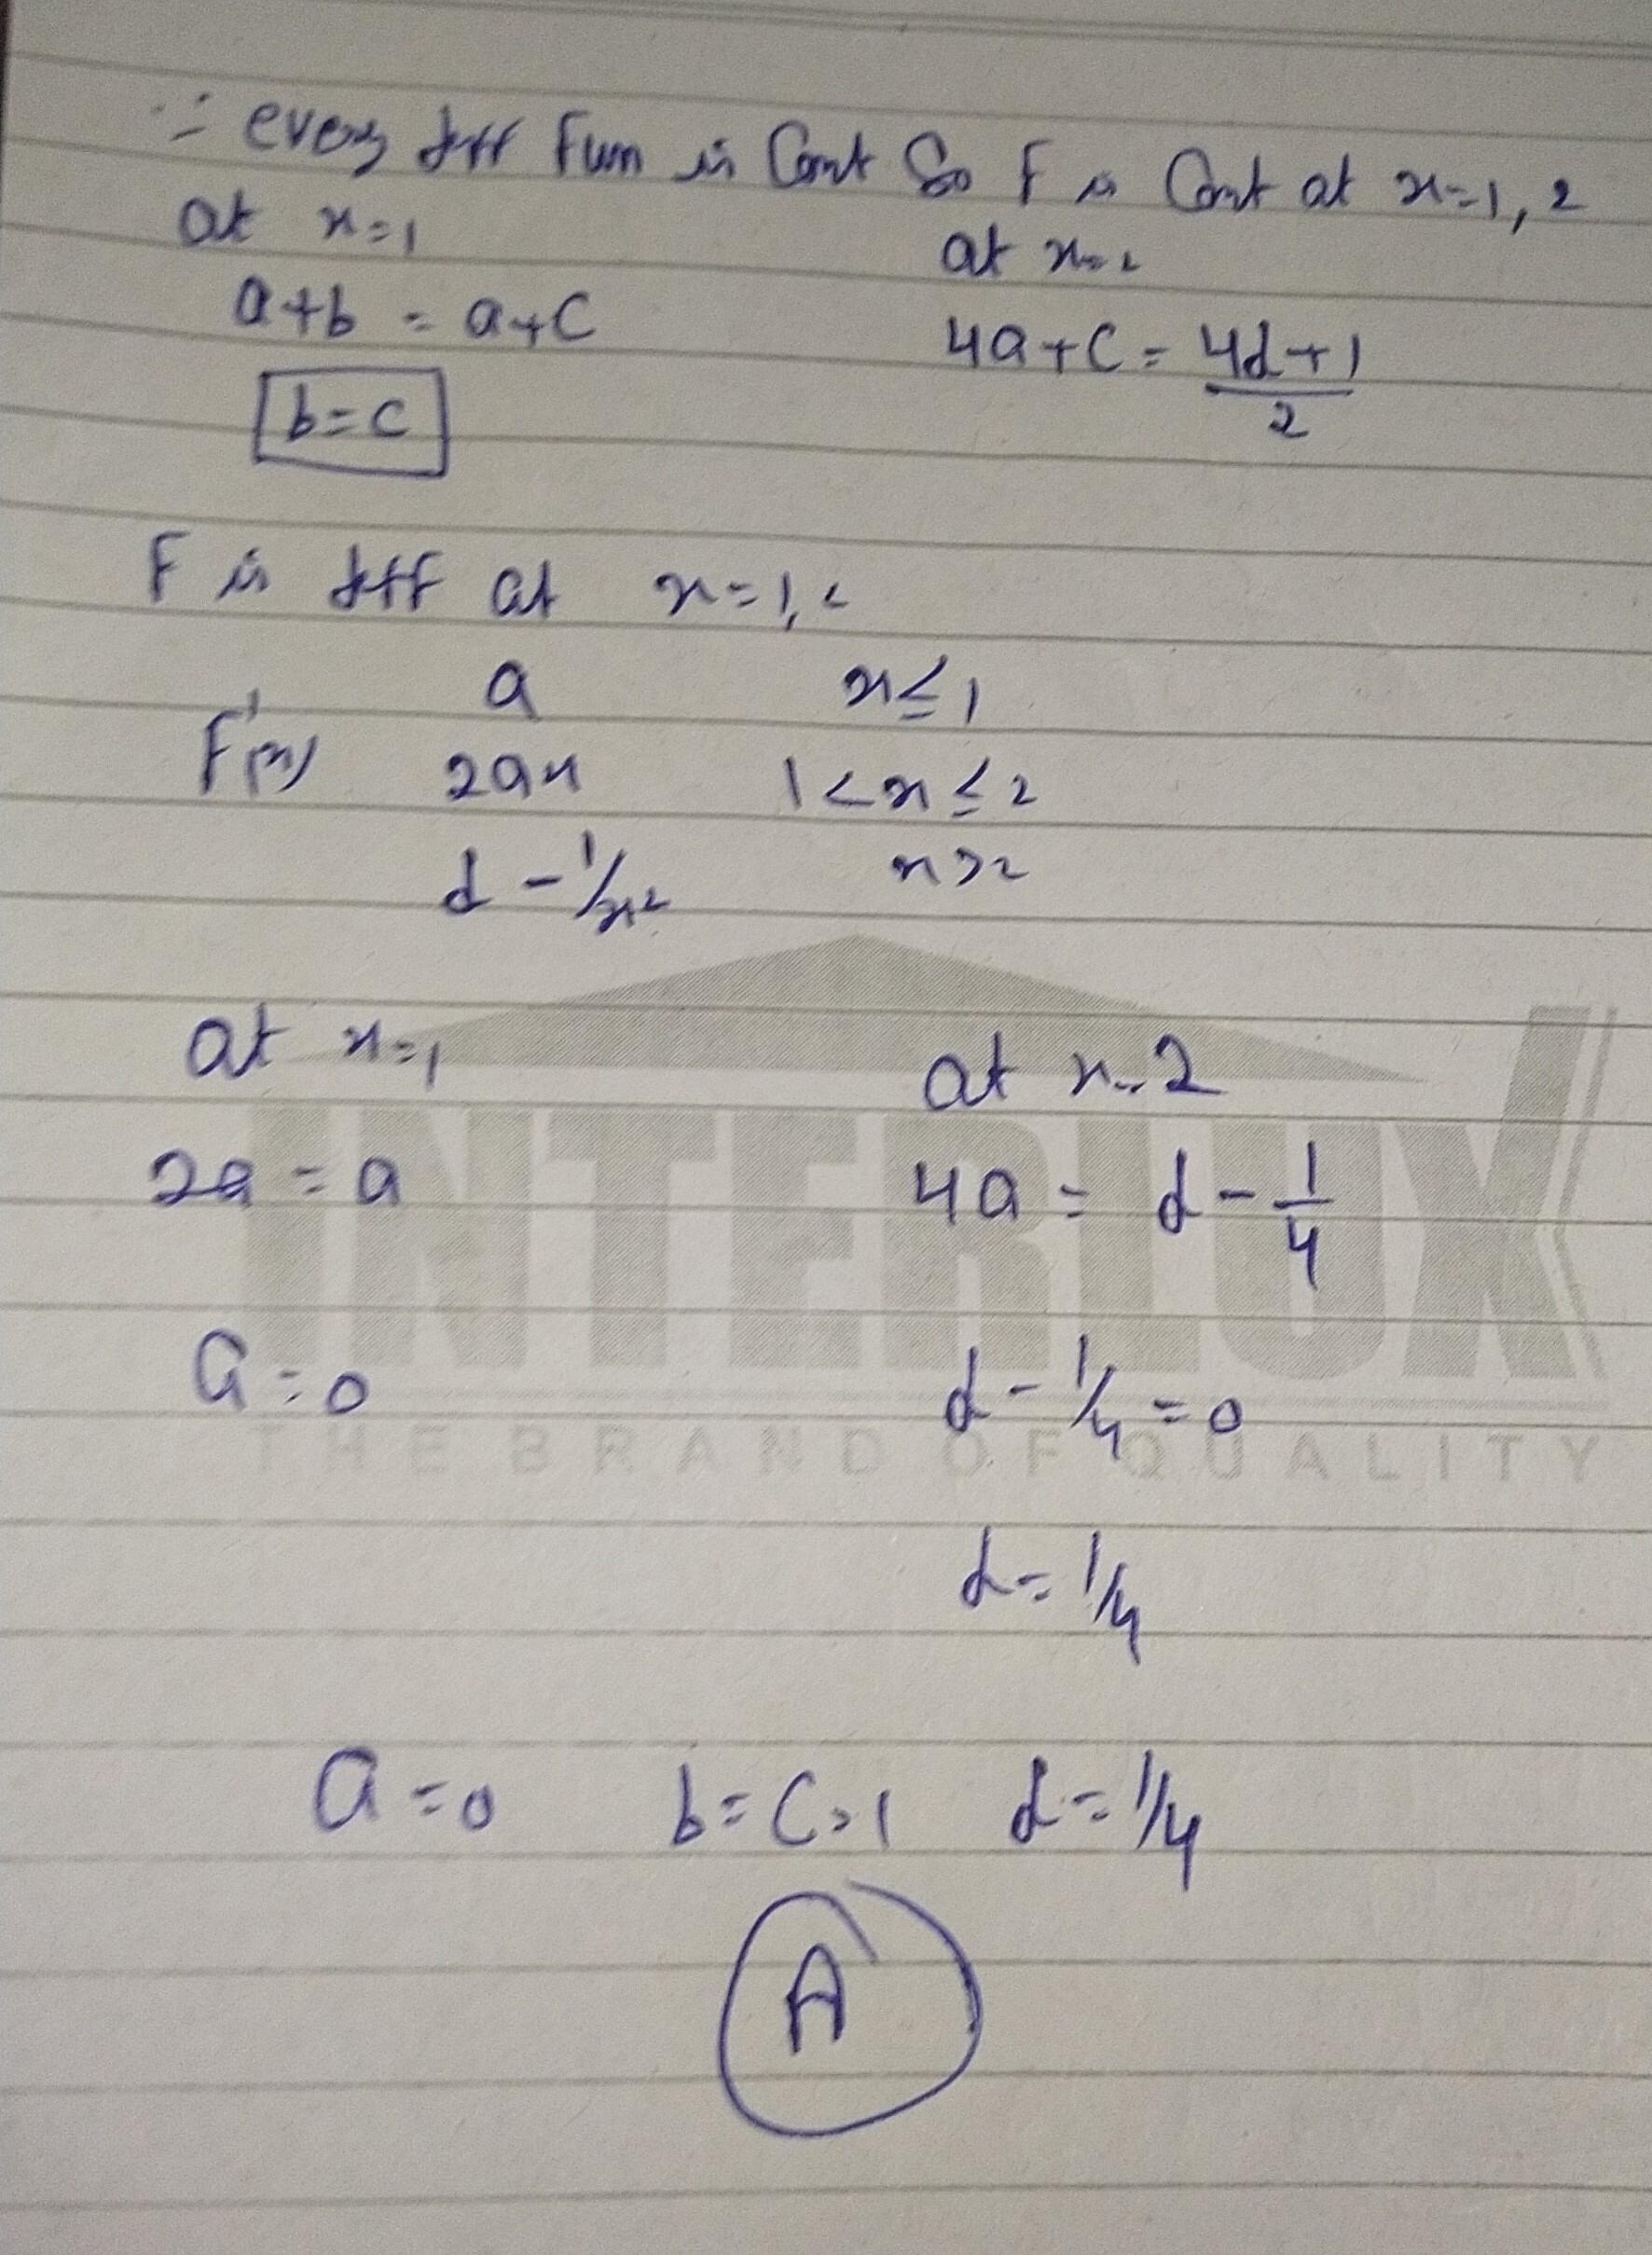 ∵ every diff Fun is Cont So F is Cont at x=1, 2
at x=1
at x=2
a+b = a+C
4a+C = 4d+1/2
b=C
F is diff at x=1, 2
a x≤1
F'(x) 2ax 1<x≤2
d - 1/x² x>2
at x=1
at x=2
INTERLUX
2a = a
4a = d - 1/4
a=0
d - 1/4 = 0
THE BRAND OF QUALITY
d = 1/4
a=0 b=C=1 d=1/4
A